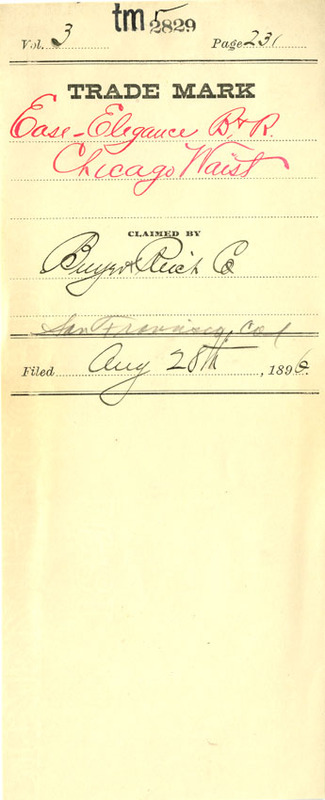 tm 2829
Vol. 3 Page 231
TRADE MARK
Ease-Elegance B. & R.
Chicago Waist
CLAIMED BY
Buyer & Reich Co
San Francisco, Cal
Filed Aug 28th, 1896.